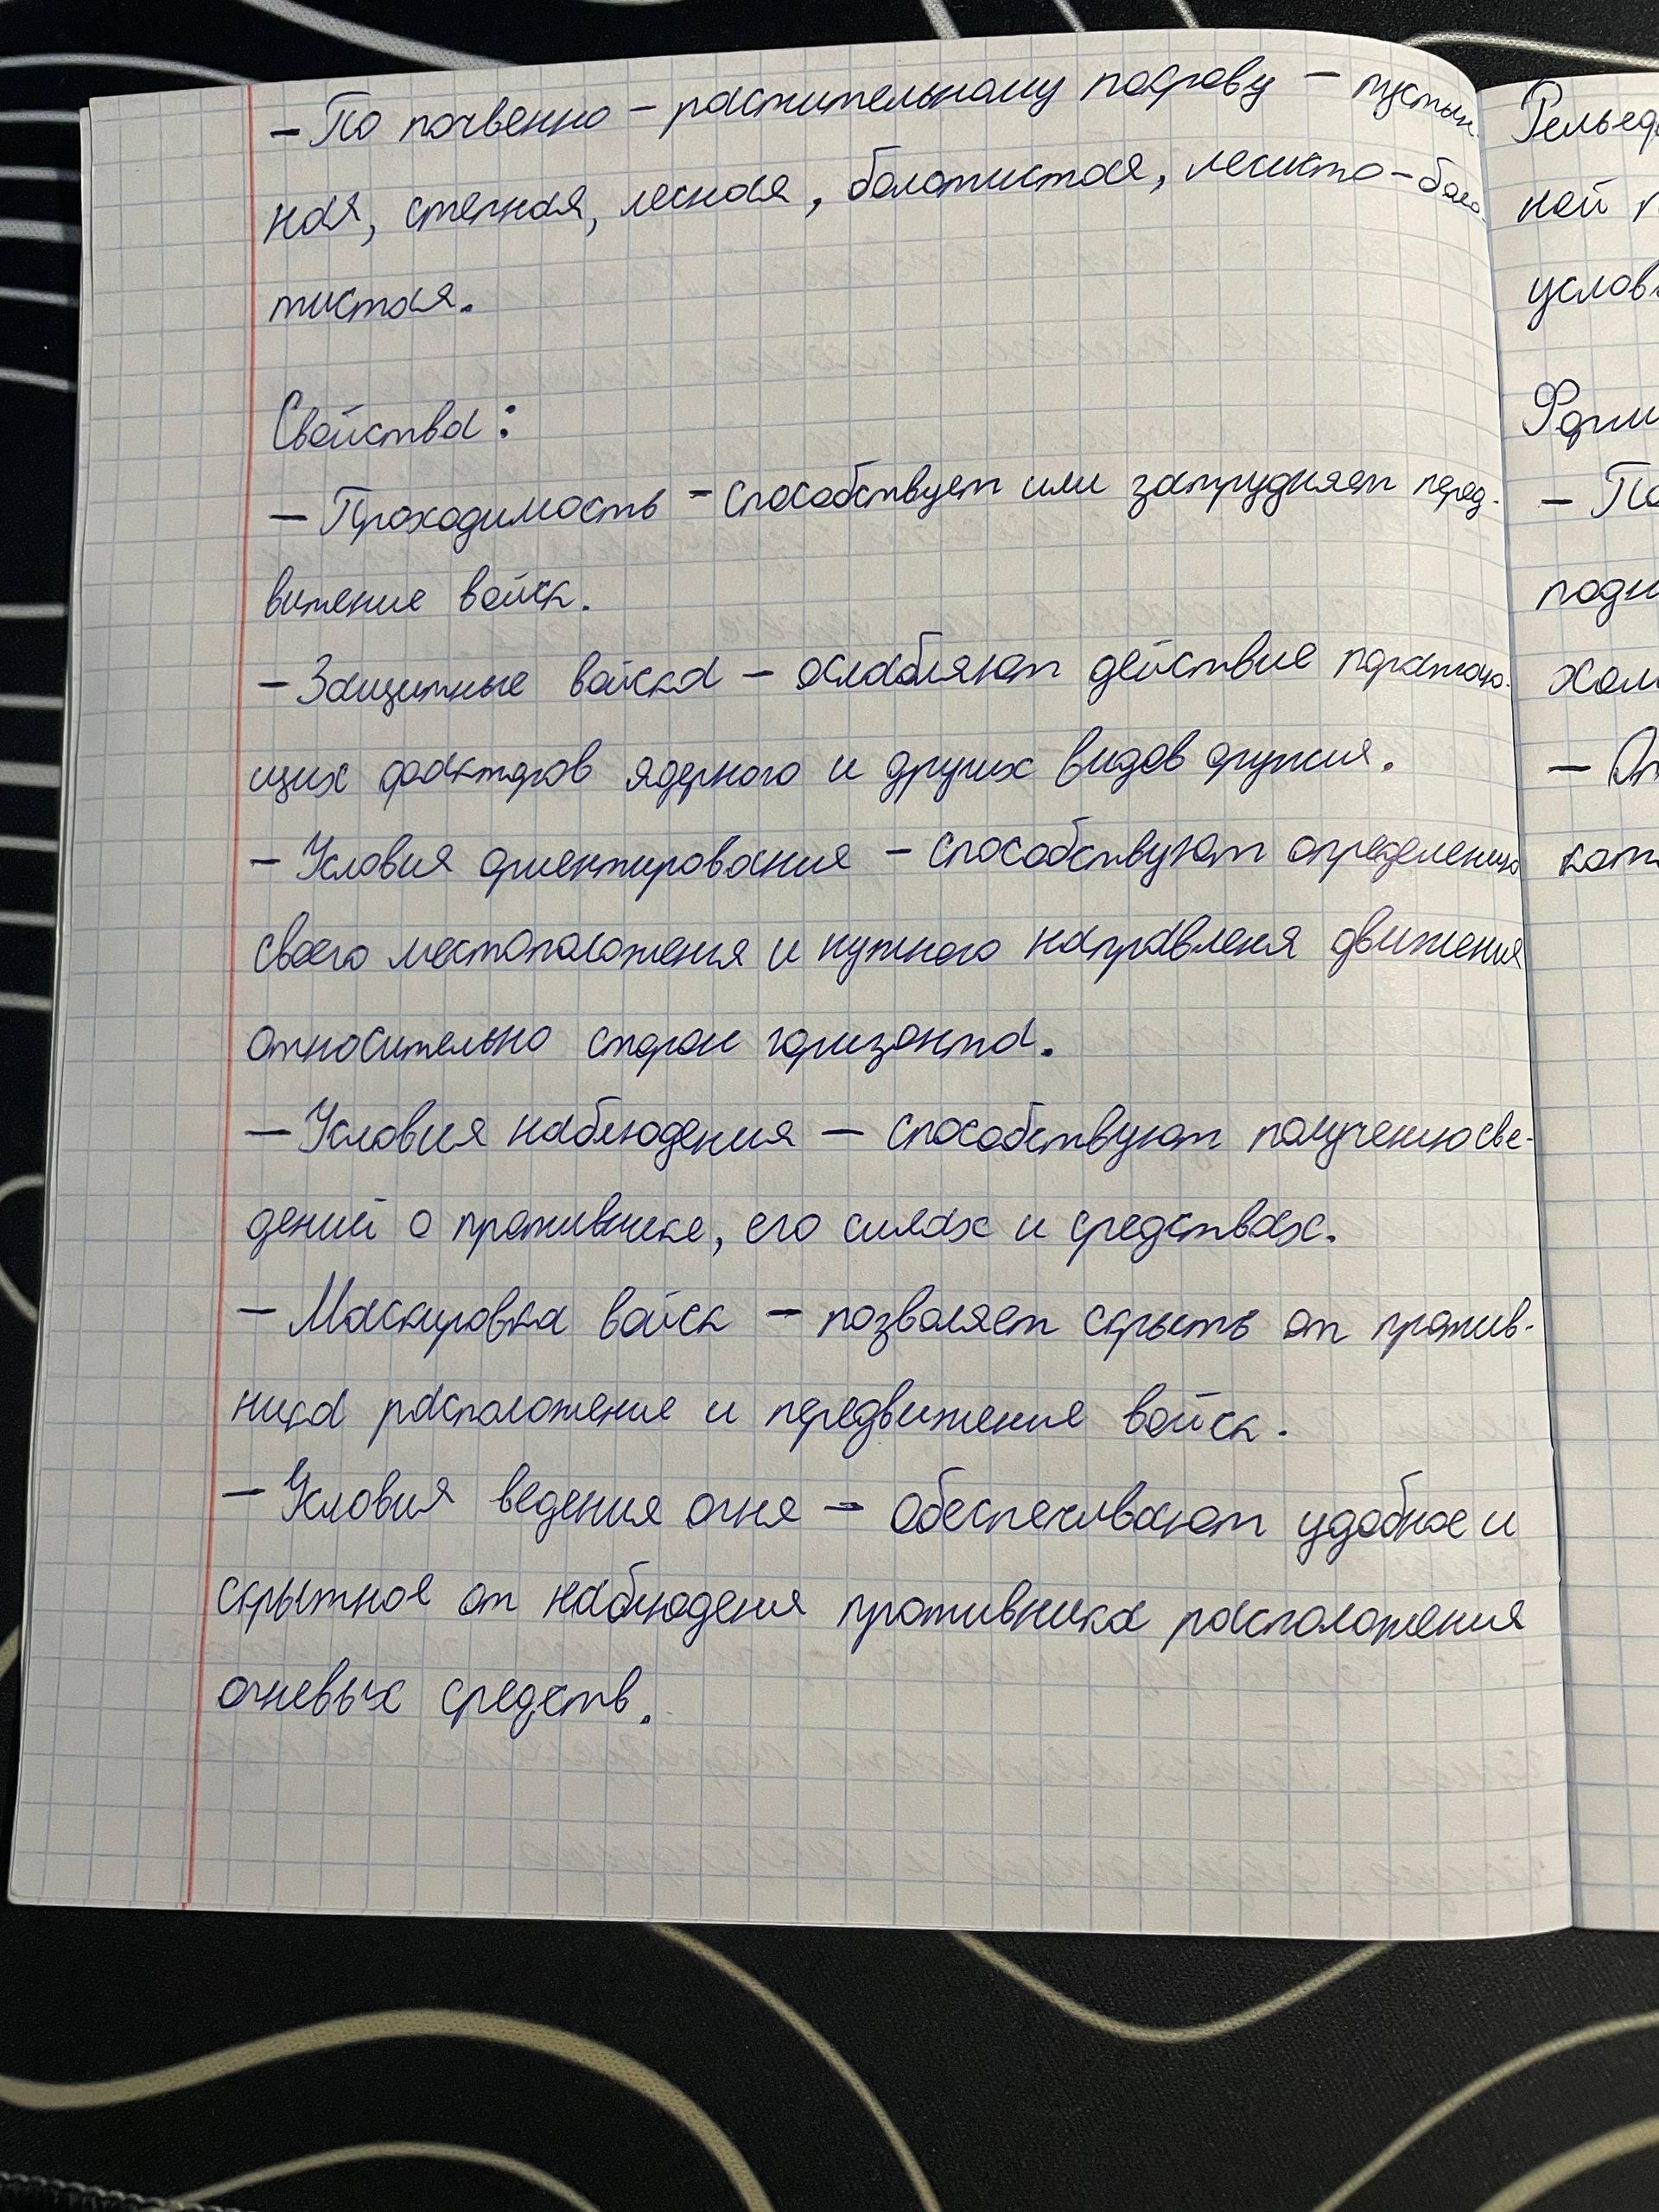 - По почвенно - растительному покрову - пустын-
ная, степная, лесная, болотистая, лесисто-боло-
тистая.
Свойства:
- Проходимость - способствует или затрудняет перед-
вижение войск.
- Защитные войска - ослабляют действие поражаю-
щих факторов ядерного и других видов оружия.
- Условия ориентирования - способствуют определению
своего местоположения и нужного направленя движения
относительно сторон горизонта.
- Условия наблюдения - способствуют получению све-
дений о противнике, его силах и средствах.
- Маскировка войск - позволяет скрыть от против-
ника расположение и передвижение войск.
- Условия ведения огня - обеспечивают удобное и
скрытное от наблюдения противника расположения
огневых средств.
Рельеф
ной
услов
Форм
- По
подн
холм
-
кот